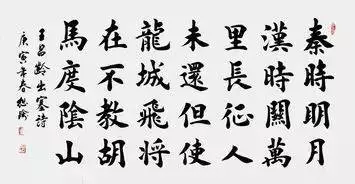 秦時明月
漢時關萬
里長征人
未還但使
龍城飛将
在不教胡
馬度陰山
王昌齡出塞詩
庚寅年春